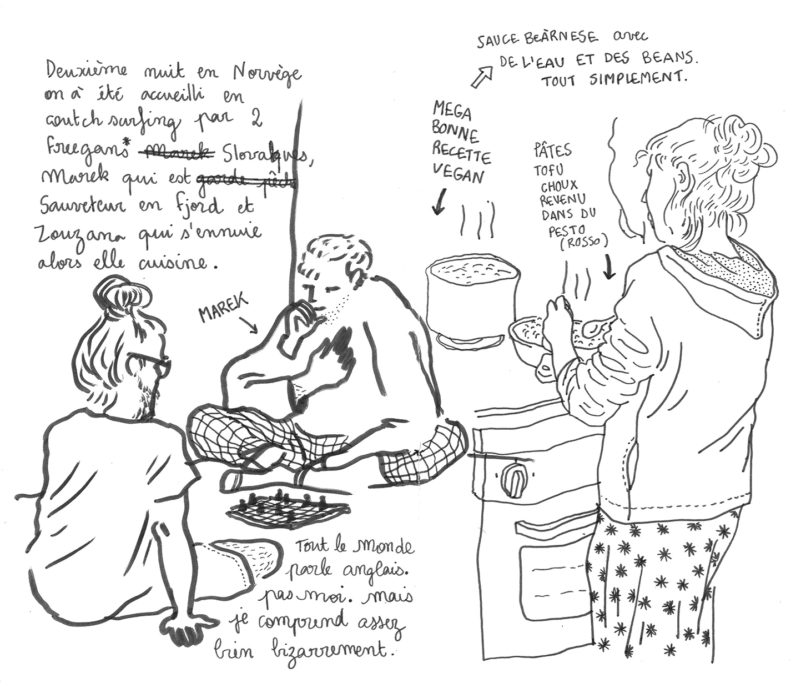 Deuxième nuit en Norvège
on à été accueilli en
coutch surfing par 2
Freegans* Marek Slovaques,
Marek qui est garde pêche
Sauveteur en Fjord et
Zouzana qui s'ennuie
alors elle cuisine.
MAREK
SAUCE BEÀRNESE avec
DE L'EAU ET DES BEANS.
TOUT SIMPLEMENT.
MEGA
BONNE
RECETTE
VEGAN
PÂTES
TOFU
CHOUX
REVENU
DANS DU
PESTO
(ROSSO)
Tout le monde
parle anglais.
pas moi. mais
je comprend assez
bien bizarrement.